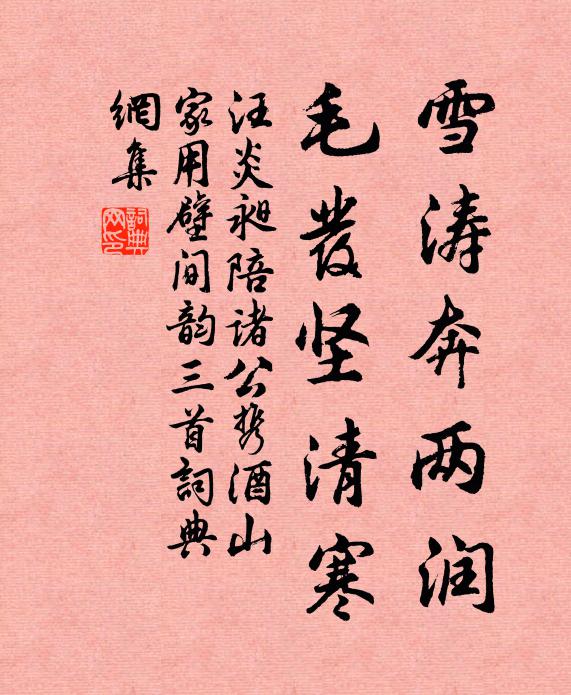 雪涛奔两润
毛發坚清寒
汪炎昶陪诸公携酒山
家用壁间韵三首詞典
網集
詞典
网印